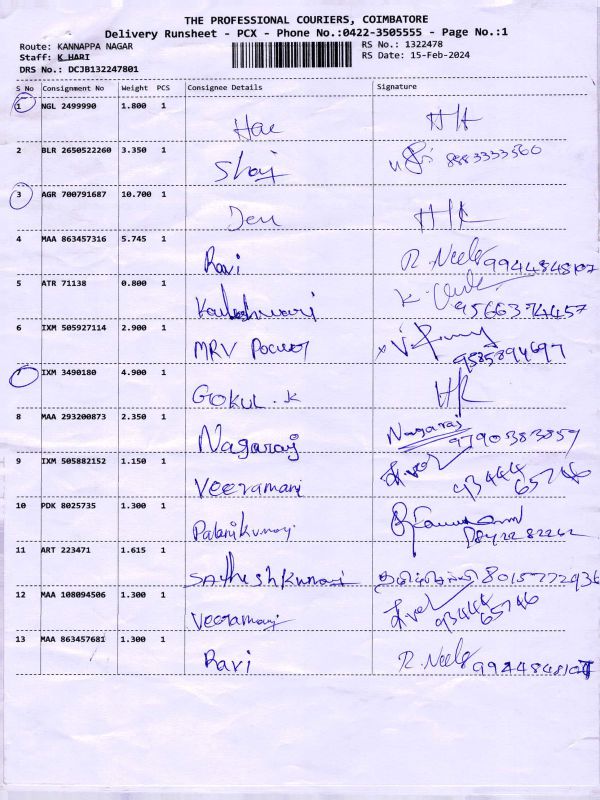 THE PROFESSIONAL COURIERS, COIMBATORE
Delivery Runsheet - PCX - Phone No.:0422-3505555 - Page No.:1
Route: KANNAPPA NAGAR RS No.: 1322478
Staff: K HARI RS Date: 15-Feb-2024
DRS No.: DCJB132247801
S No Consignment No Weight PCS Consignee Details Signature
1 NGL 2499990 1.800 1
2 BLR 2650522260 3.350 1 8883333560
3 AGR 700791687 10.700 1
4 MAA 863457316 5.745 1 Ravi R. Neela 9944848107
5 ATR 71138 0.800 1 9566374457
6 IXM 505927114 2.900 1 MRV 9585894697
7 IXM 3490180 4.900 1 GOKUL . K
8 MAA 293200873 2.350 1 Nagaraj Nagaraj 9790383859
9 IXM 505882152 1.150 1 Veeramani 93444
65746
10 PDK 8025735 1.300 1
11 ART 223471 1.615 1 8015772936
12 MAA 108094506 1.300 1 Veeramani 93444
65746
13 MAA 863457681 1.300 1 Ravi R. Neela 9944848107